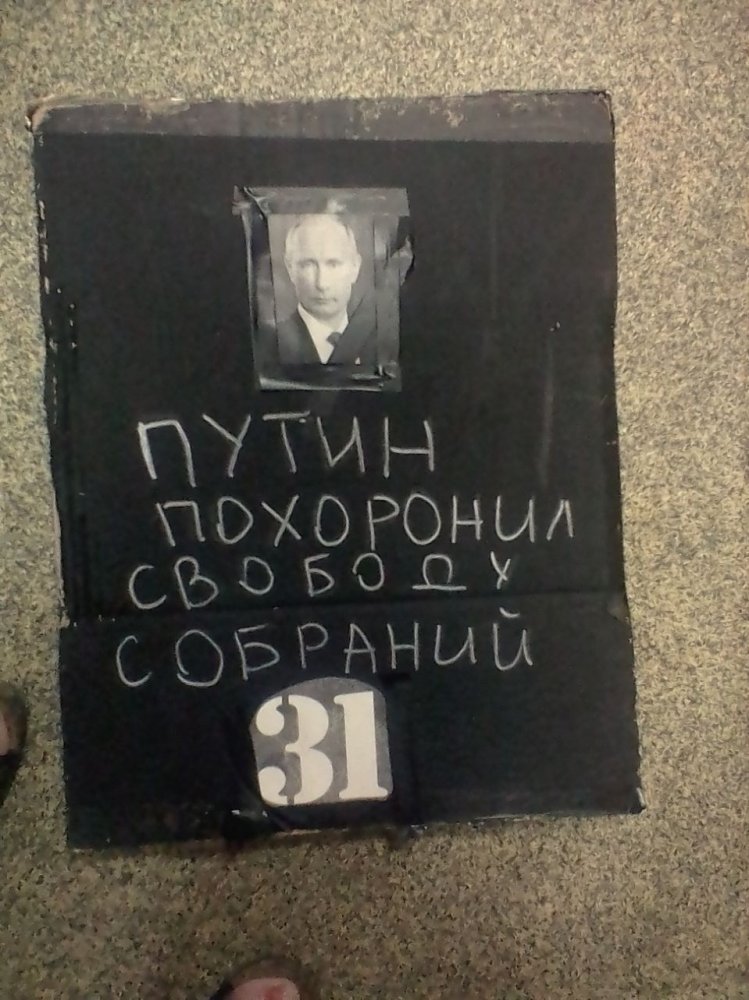 ПУТИН
ПОХОРОНИЛ
СВОБОДУ
СОБРАНИЙ
31